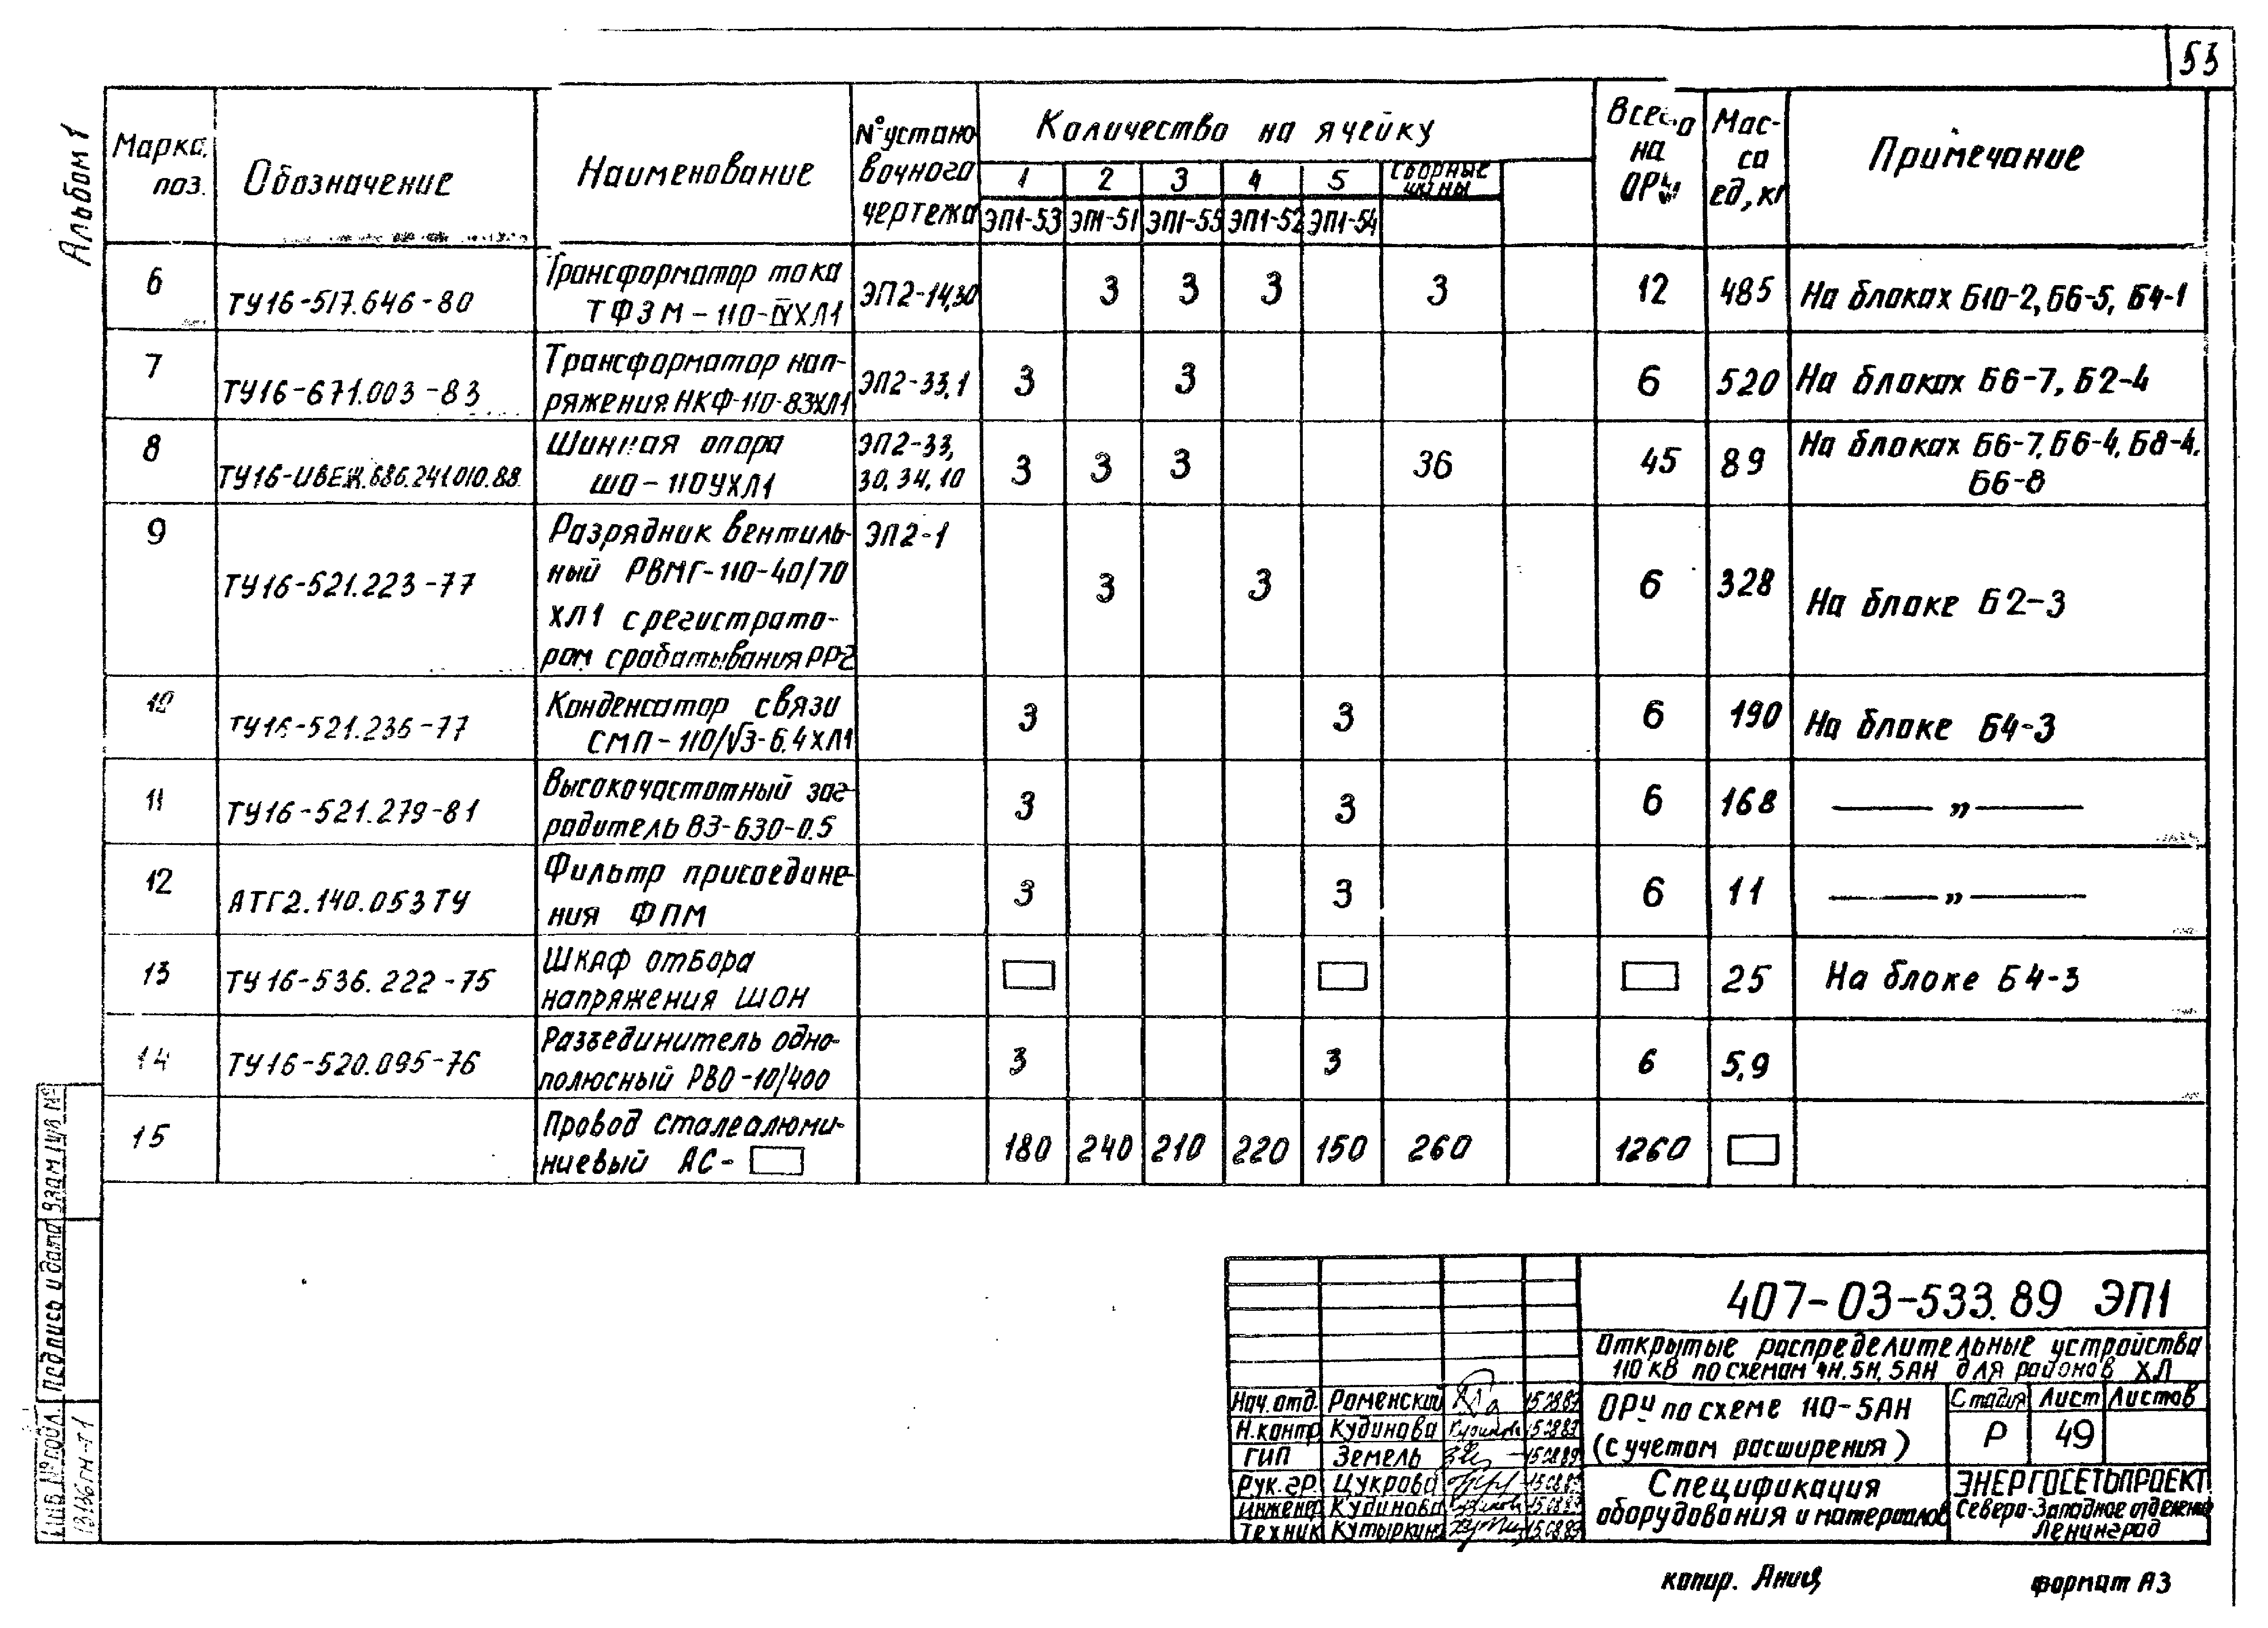 53
Альбом 1
Марка, поз.
Обозначение
Наименование
№ установочного чертежа
Количество на ячейку
Всего на ОРУ
Масса ед, кг
Примечание
1 2 3 4 5 Сборные шины
ЭП1-53 ЭП1-51 ЭП1-55 ЭП1-52 ЭП1-54
6 ТУ16-517.646-80 Трансформатор тока ЭП2-14,30 3 3 3 3 12 485 На блоках Б10-2, Б6-5, Б4-1
ТФЗМ-110-IVХЛ1
7 ТУ16-671.003-83 Трансформатор нап- ЭП2-33,1 3 3 6 520 На блоках Б6-7, Б2-4
ряжения НКФ-110-83ХЛ1
8 ТУ16-ИВЕЖ.686.241.010.88 Шинная опора ЭП2-33, 3 3 3 36 45 89 На блоках Б6-7, Б6-4, Б8-4,
ШО-110УХЛ1 30, 34, 10 Б6-8
9 ТУ16-521.223-77 Разрядник вентиль- ЭП2-1 3 3 6 328 На блоке Б2-3
ный РВМГ-110-40/70
ХЛ1 с регистрато-
ром срабатывания РР-2
10 ТУ16-521.236-77 Конденсатор связи 3 3 6 190 На блоке Б4-3
СМП-110/√3-6.4ХЛ1
11 ТУ16-521.279-81 Высокочастотный заг- 3 3 6 168 — „ —
радитель ВЗ-630-0.5
12 АТГ2.140.053ТУ Фильтр присоедине- 3 3 6 11 — „ —
ния ФПМ
13 ТУ16-536.222-75 Шкаф отбора 25 На блоке Б4-3
напряжения ШОН
14 ТУ16-520.095-76 Разъединитель одно- 3 3 6 5,9
полюсный РВО-10/400
15 Провод сталеалюми- 180 240 210 220 150 260 1260
ниевый АС-
407-03-533.89 ЭП1
Открытые распределительные устройства
110 кВ по схемам 4Н, 5Н, 5АН для районов ХЛ
Нач. отд. Роменский 15.08.89
Н.контр Кудинова 15.08.89
ГИП Земель 15.08.89
Рук.гр. Цукрова 15.08.89
Инженер Кудинова 15.08.89
Техник Кутыркина 15.08.89
ОРУ по схеме 110-5АН
(с учетом расширения)
Стадия Лист Листов
Р 49
Спецификация
оборудования и материалов
ЭНЕРГОСЕТЬПРОЕКТ
Северо-Западное отделение
Ленинград
копир. Аниц
формат А3
Инв № подл. Подпись и дата Взам инв №
13136тм-т1